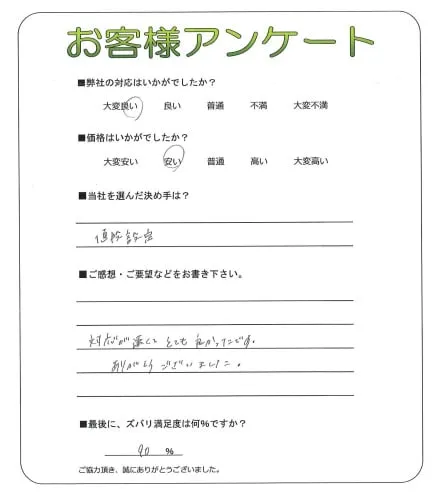 お客様アンケート
■弊社の対応はいかがでしたか？
大変良い 良い 普通 不満 大変不満
■価格はいかがでしたか？
大変安い 安い 普通 高い 大変高い
■当社を選んだ決め手は？
値段設定
■ご感想・ご要望などをお書き下さい。
対応が速くて とても 良かったです。
ありがとうございました。
■最後に、ズバリ満足度は何％ですか？
90 ％
ご協力頂き、誠にありがとうございました。